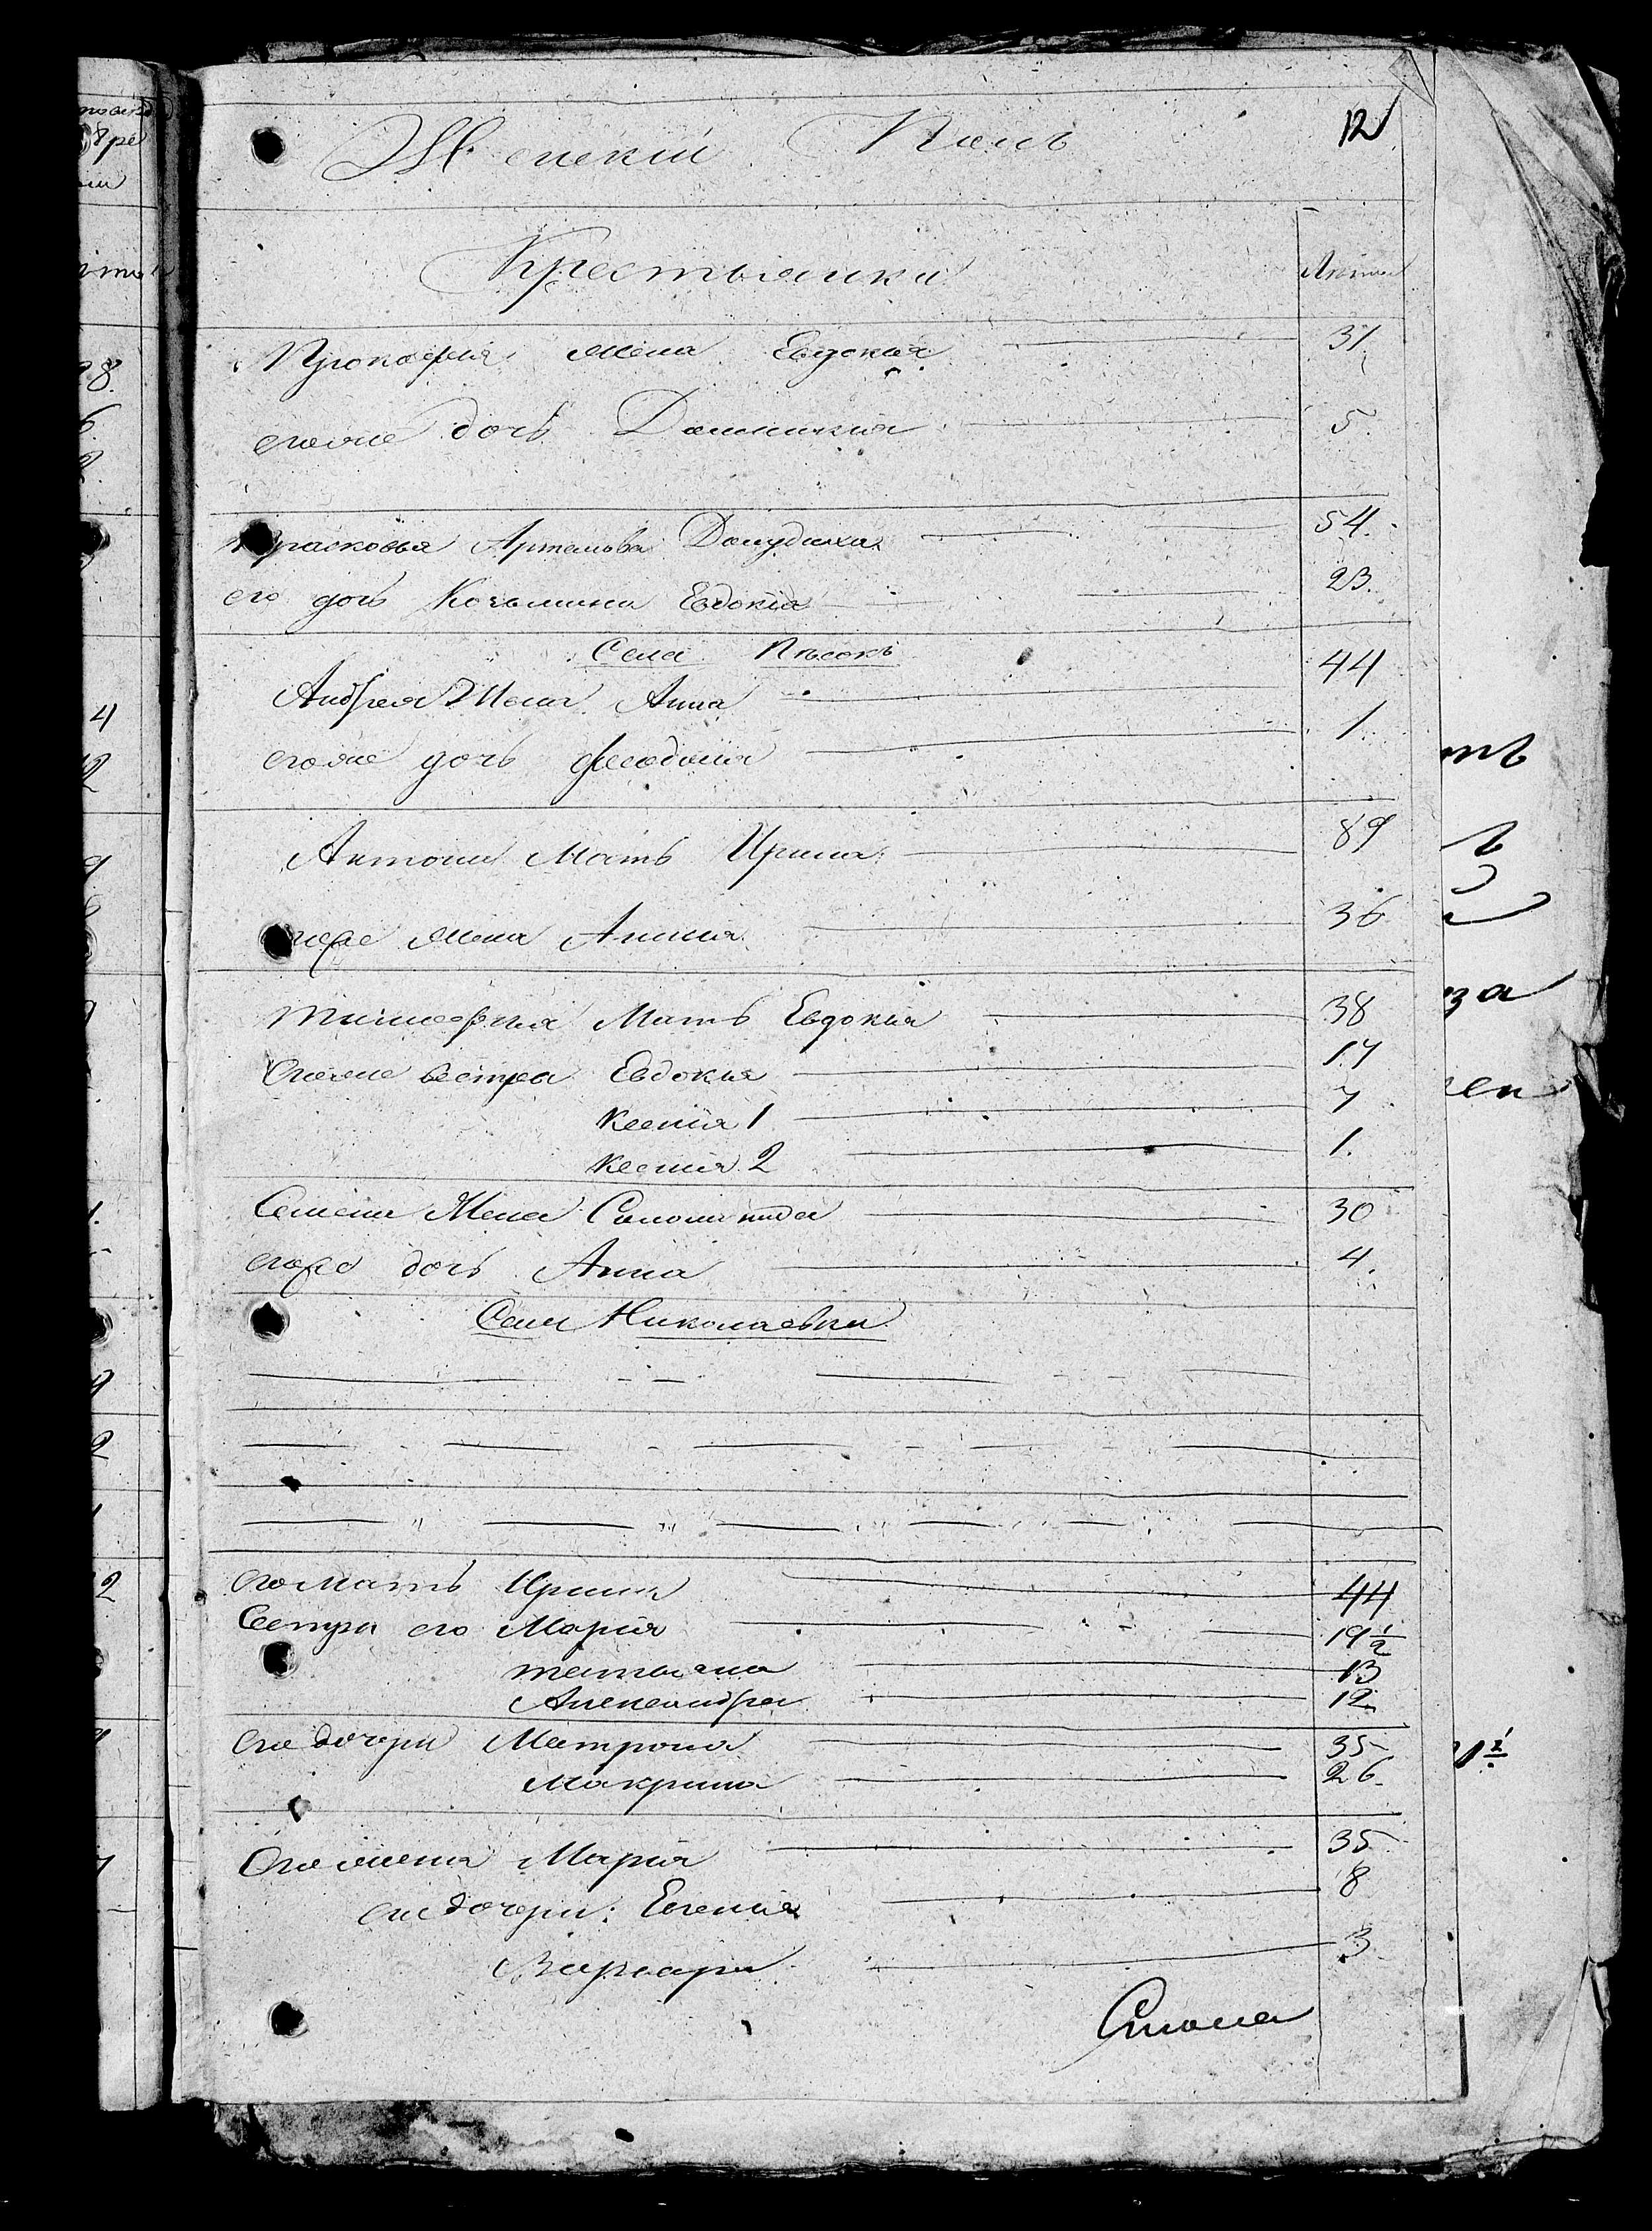 12
Женскій Полъ
Крестьянки
Лѣта
Прокофія жена Евдокия 31
егоже дочь Домникия 5.
Прасковья Артемова Долудиха 54.
его дочь Козьмина Евдокія 23.
Села Пѣсокъ
Андрея Жена Анна 44
егоже дочь Феодосия 1.
Антона Мать Ирина 89
егоже жена Анна 36
Тимофея Мать Евдокия 38
Егоже сестра Евдокия 17
Ксения 1 7
Ксения 2 1.
Семена Жена Соломанида 30
егоже дочь Анна 4.
Села Николаевки
его мать Ирина 44
Сестры его Мария 19 1/2
татьяна 13
Александра 12
Его дочери Матрона 35
Макрина 26.
Его жена Мария 35
его дочери: Евгения 8
Варвара 3